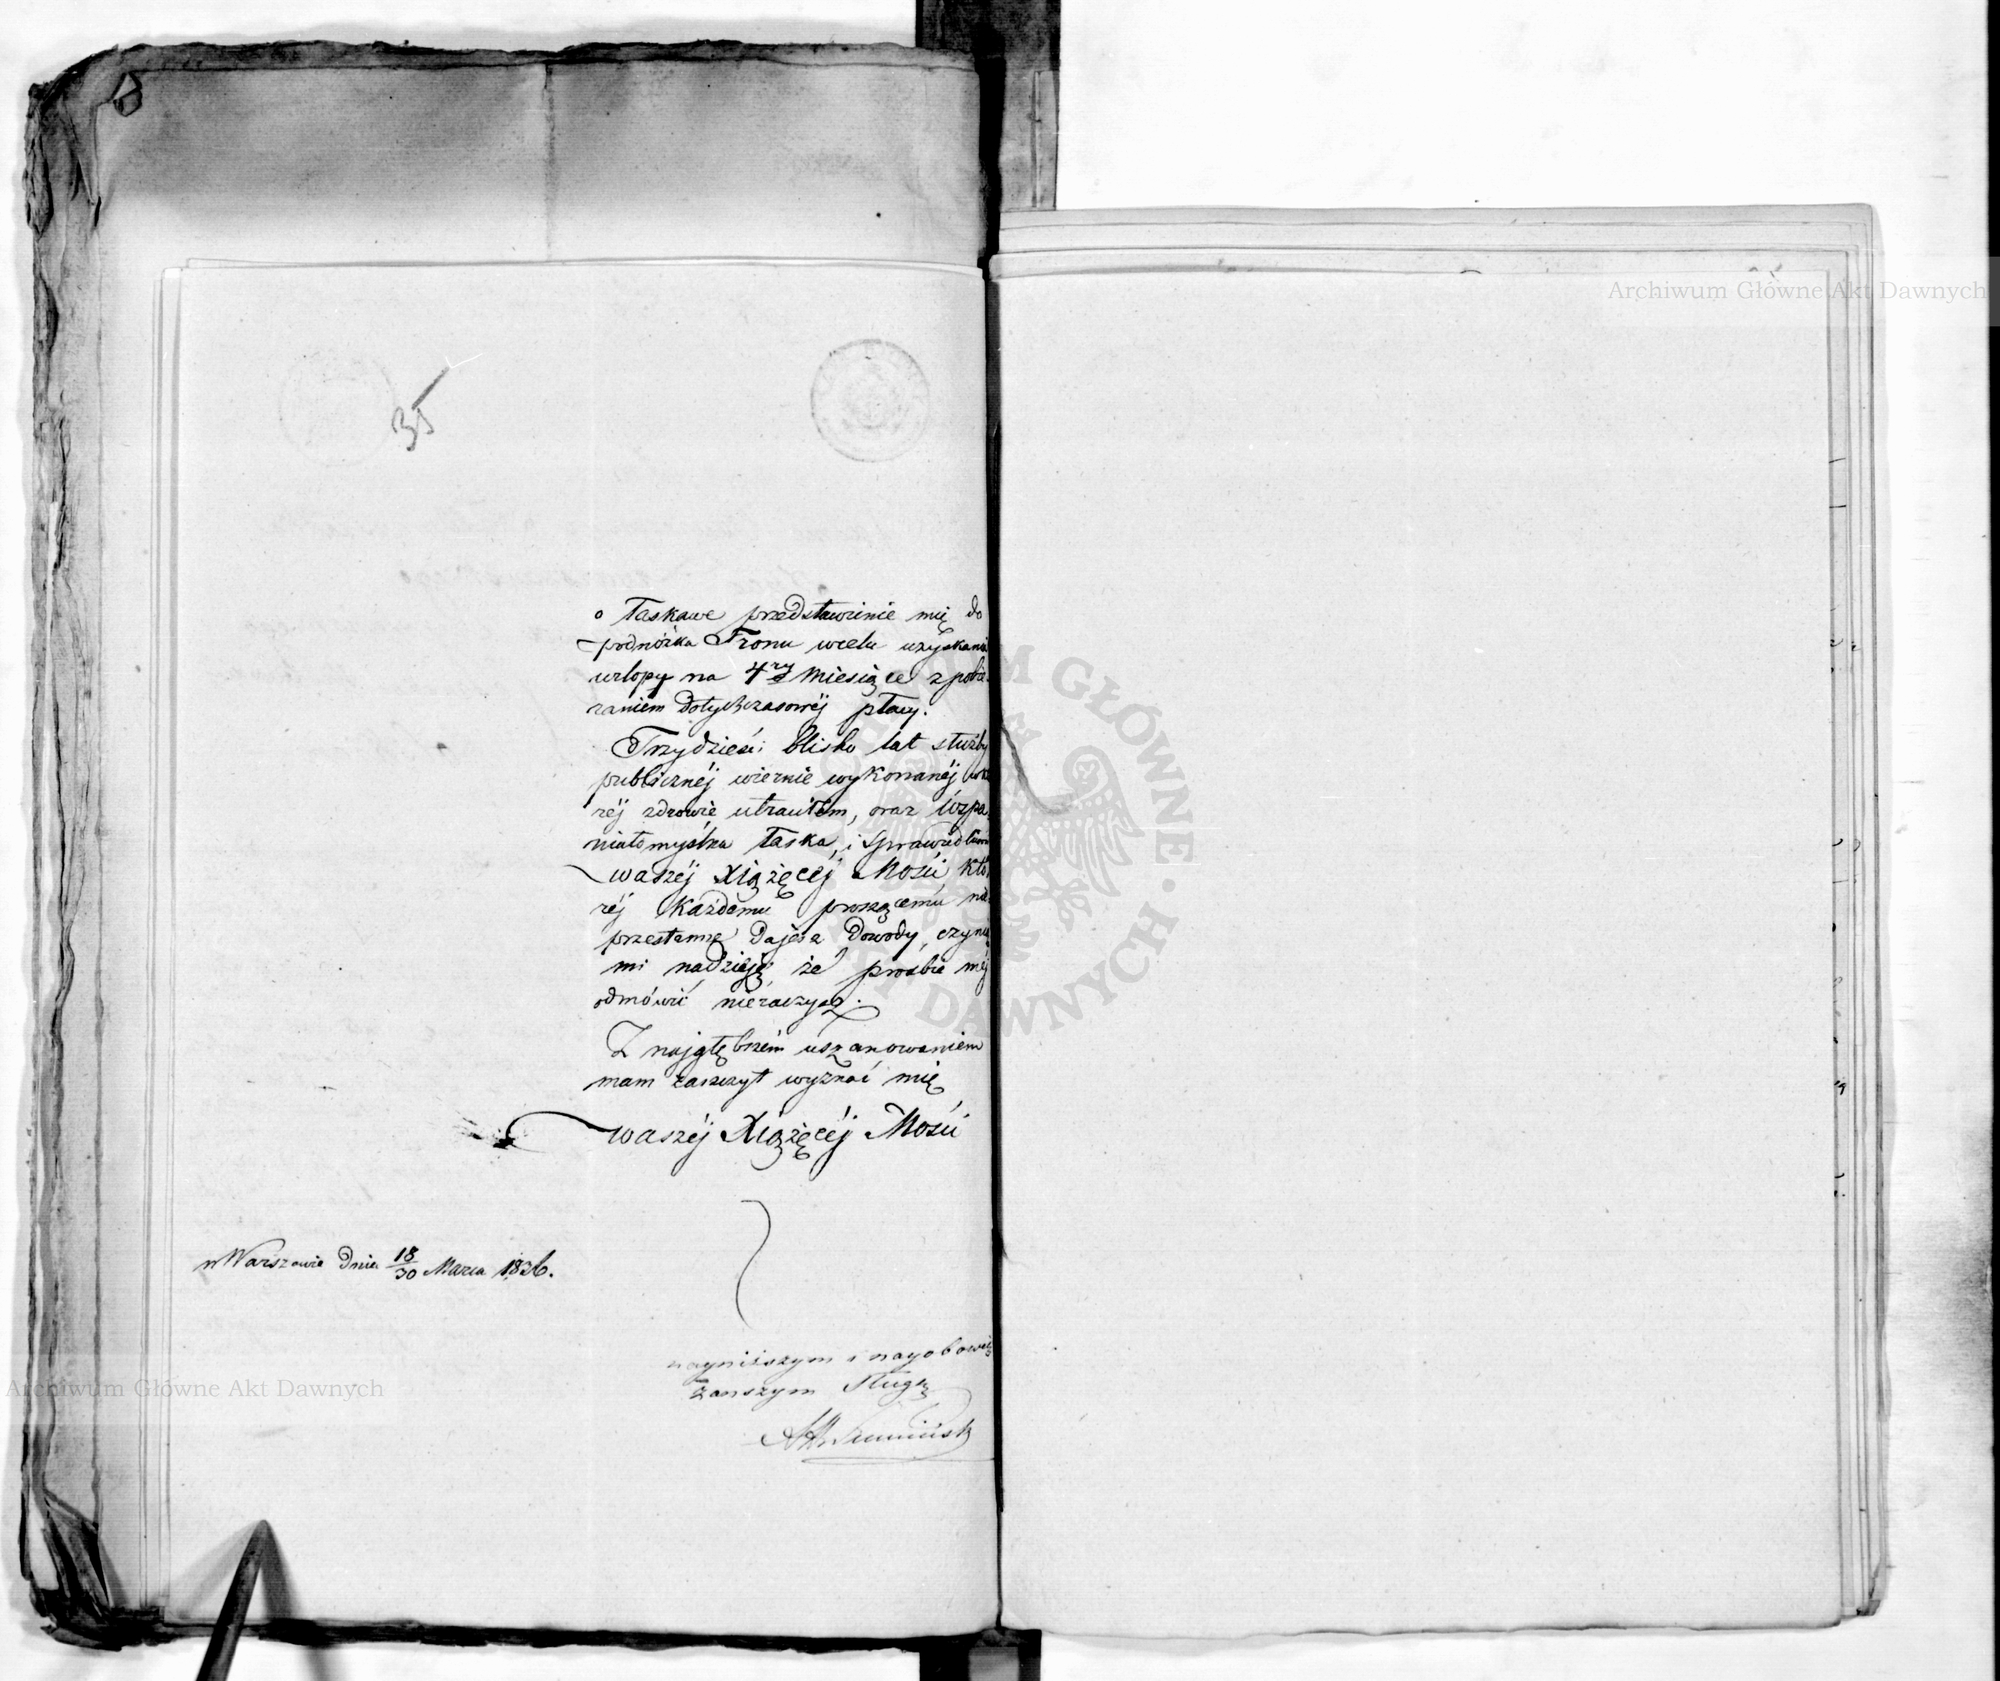 35
o łaskawe przedstawienie mię do
podnóżka Tronu wcelu uzyskania
urlopu na 4ry Miesiące z pobie-
raniem dotychczasowéj płacy.
Trzydzieści blisko lat służby
publicznéj wiernie wykonanéj
réj zdrowie utraciłem, oraz wspa
niałomyślna łaska, i sprawiedliwość
waszéj Xiążęcéj Mości któ
réj każdemu proszącemu nie
przestannie dajesz dowody, czynią
mi nadzieję że prośbie méj
odmówić nieraczysz.
Z najgłębszém uszanowaniem
mam zaszczyt wyznać mię
waszéj Xiążęcéj Mości
w Warszawie dnia 18/30 Marca 1836.
nayniższym i nayobowią
zańszym sługą
Archiwum Główne Akt Dawnych
Archiwum Główne Akt Dawnych
ARCHIWUM GŁÓWNE AKT DAWNYCH